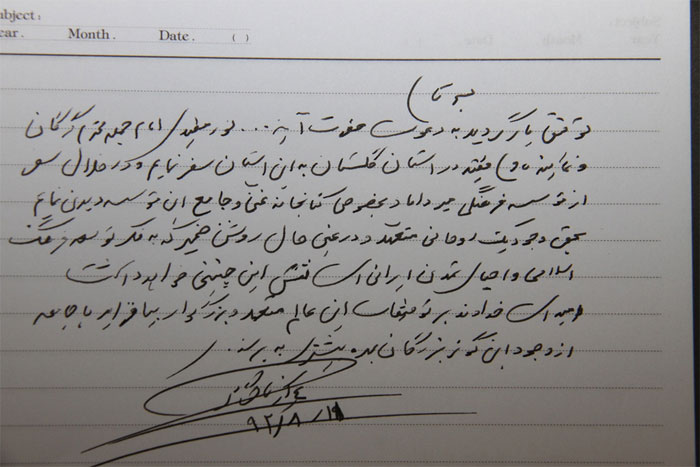 ubject:
ear. Month. Date. ( )
بسمه تعالی
توفیق یار گردید به دعوت حضرت آیة ... نور مفیدی امام جمعه محترم گرگان
و نماینده ولی فقیه در استان گلستان به این استان سفر نمایم و در خلال سفر
از توسسه فرهنگی میرداماد بخصوص کتابخانه غنی و جامع این توسسه دیدن نمایم
بحق وجود یک روحانی متعهد و در عین حال روشن ضمیر که به فکر توسعه فرهنگ
اسلامی و احیای تمدن ایرانی است نقشی این چنین خواهد داشت
امید است خداوند بر توفیقات این عالم متعهد و بزرگوار بیافزاید تا جامعه
از وجود این گونه بزرگان بهره بیشتری به برند.
۹۲/۸/